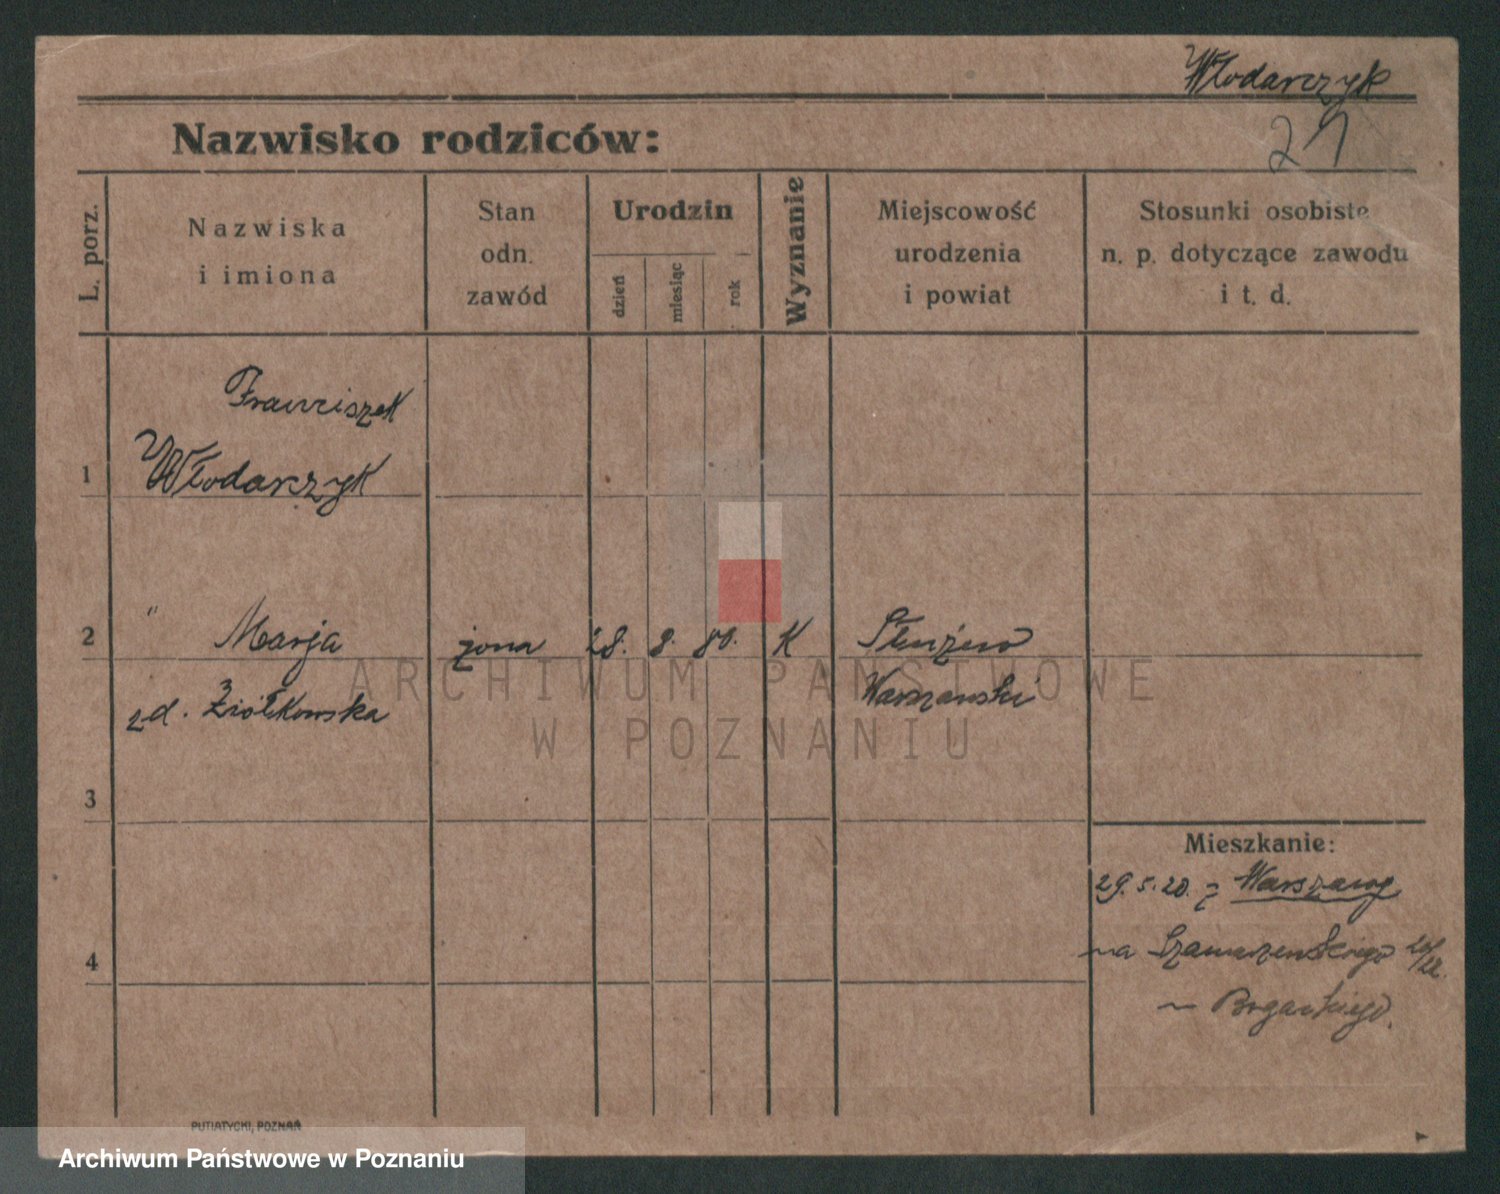 Włodarczyk
21
Nazwisko rodziców:
L. porz.
Nazwiska
i imiona
Stan
odn.
zawód
Urodzin
dzień
miesiąc
rok
Wyznanie
Miejscowość
urodzenia
i powiat
Stosunki osobiste
n. p. dotyczące zawodu
i t. d.
Franciszek
1
Włodarczyk
2 " Marja żona 28. 8. 80. K Służewo
zd. Ziółkowska Warszawski
3
Mieszkanie:
29.5.20. z Warszawy
4
na
Bogarkiego.
PUTIATYCKI, POZNAŃ
ARCHIWUM PAŃSTWOWE
W POZNANIU
Archiwum Państwowe w Poznaniu